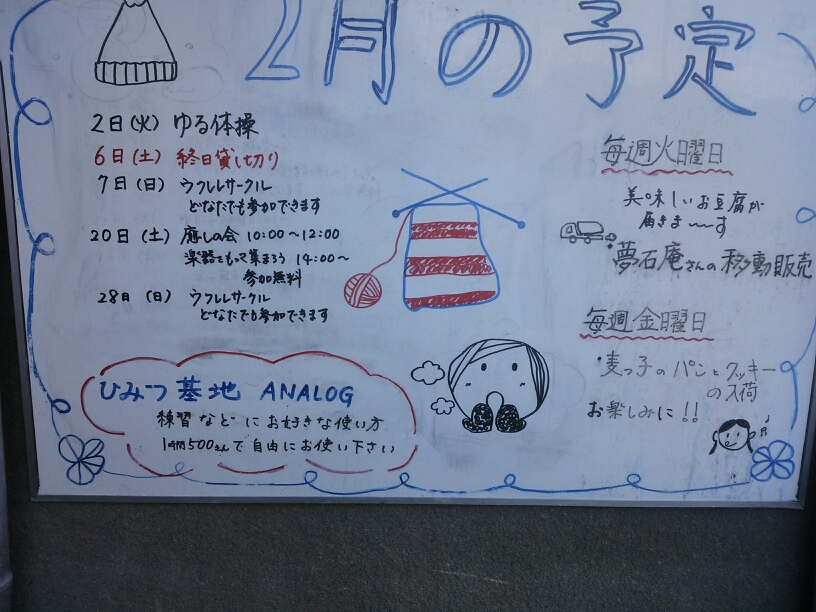 2月の予定
2日(火) ゆる体操
6日(土) 終日貸し切り
7日(日) ウクレレサークル
どなたでも参加できます
20日(土) 癒しの会 10:00〜12:00
楽器をもって集まろう 14:00〜
参加無料
28日(日) ウクレレサークル
どなたでも参加できます
ひみつ基地 ANALOG
練習などにお好きな使い方
1時間500えんで自由にお使い下さい
毎週火曜日
美味しいお豆腐が
届きま〜〜す
夢石庵さんの移動販売
毎週金曜日
・麦っ子のパンとクッキー
の入荷
お楽しみに!!